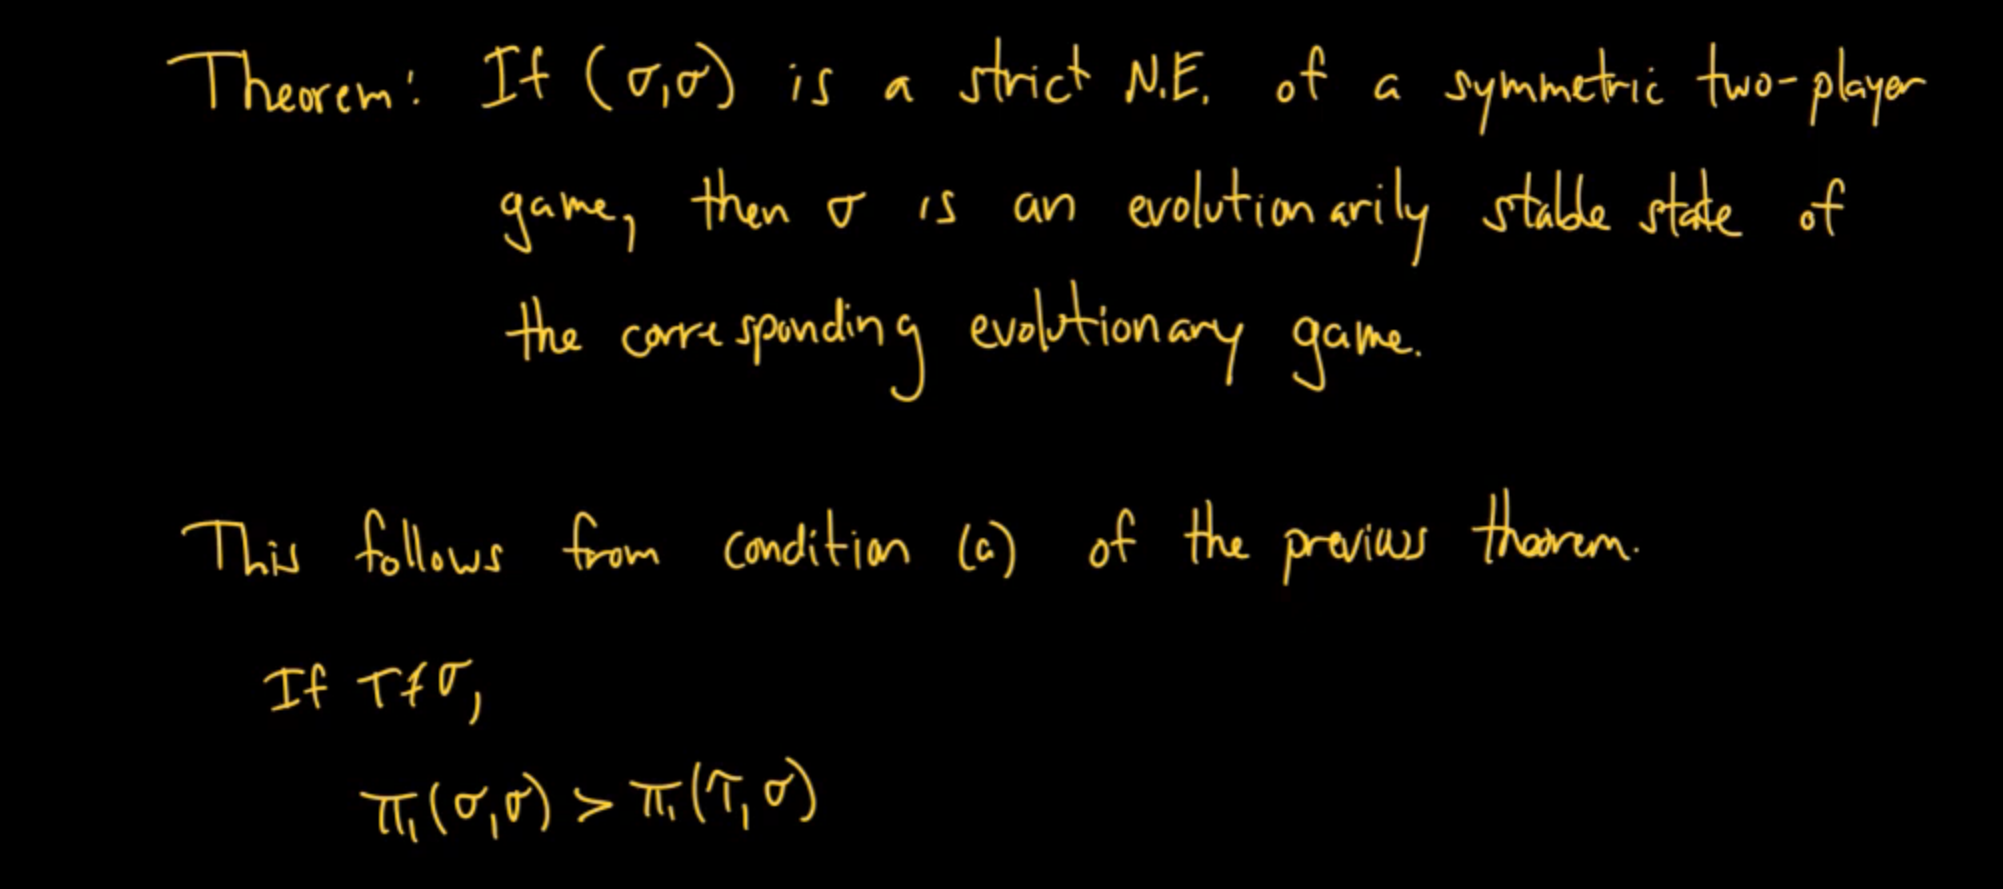 Theorem: If (σ,σ) is a strict N.E. of a symmetric two-player
game, then σ is an evolutionarily stable state of
the corresponding evolutionary game.
This follows from condition (a) of the previous theorem.
If τ≠σ,
π₁(σ,σ) > π₁(τ,σ)